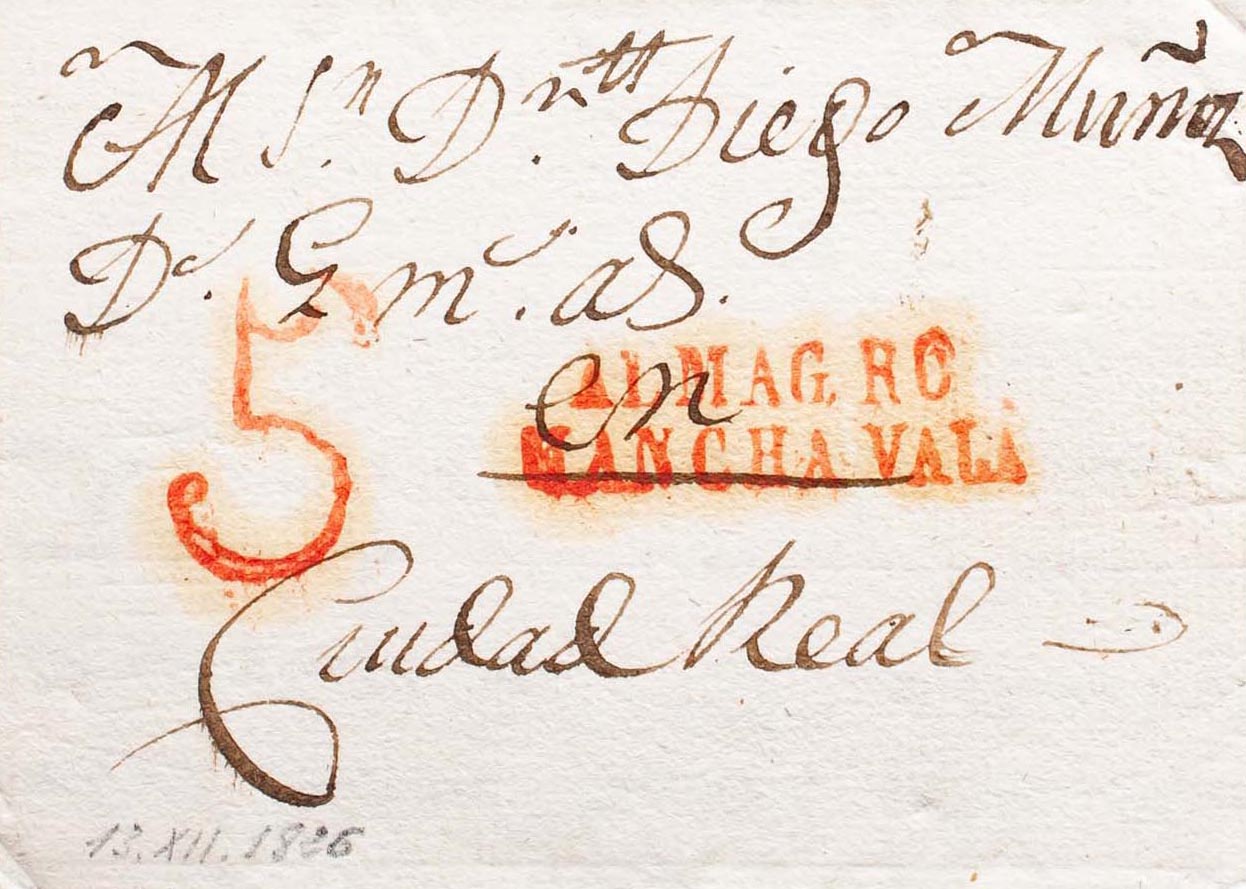 Al Sn. Dn. Diego Muñoz
De. G mc. a S.
5
en
ALMAGRO
MANCHA VALA
Ciudad Real
13.XII.1826